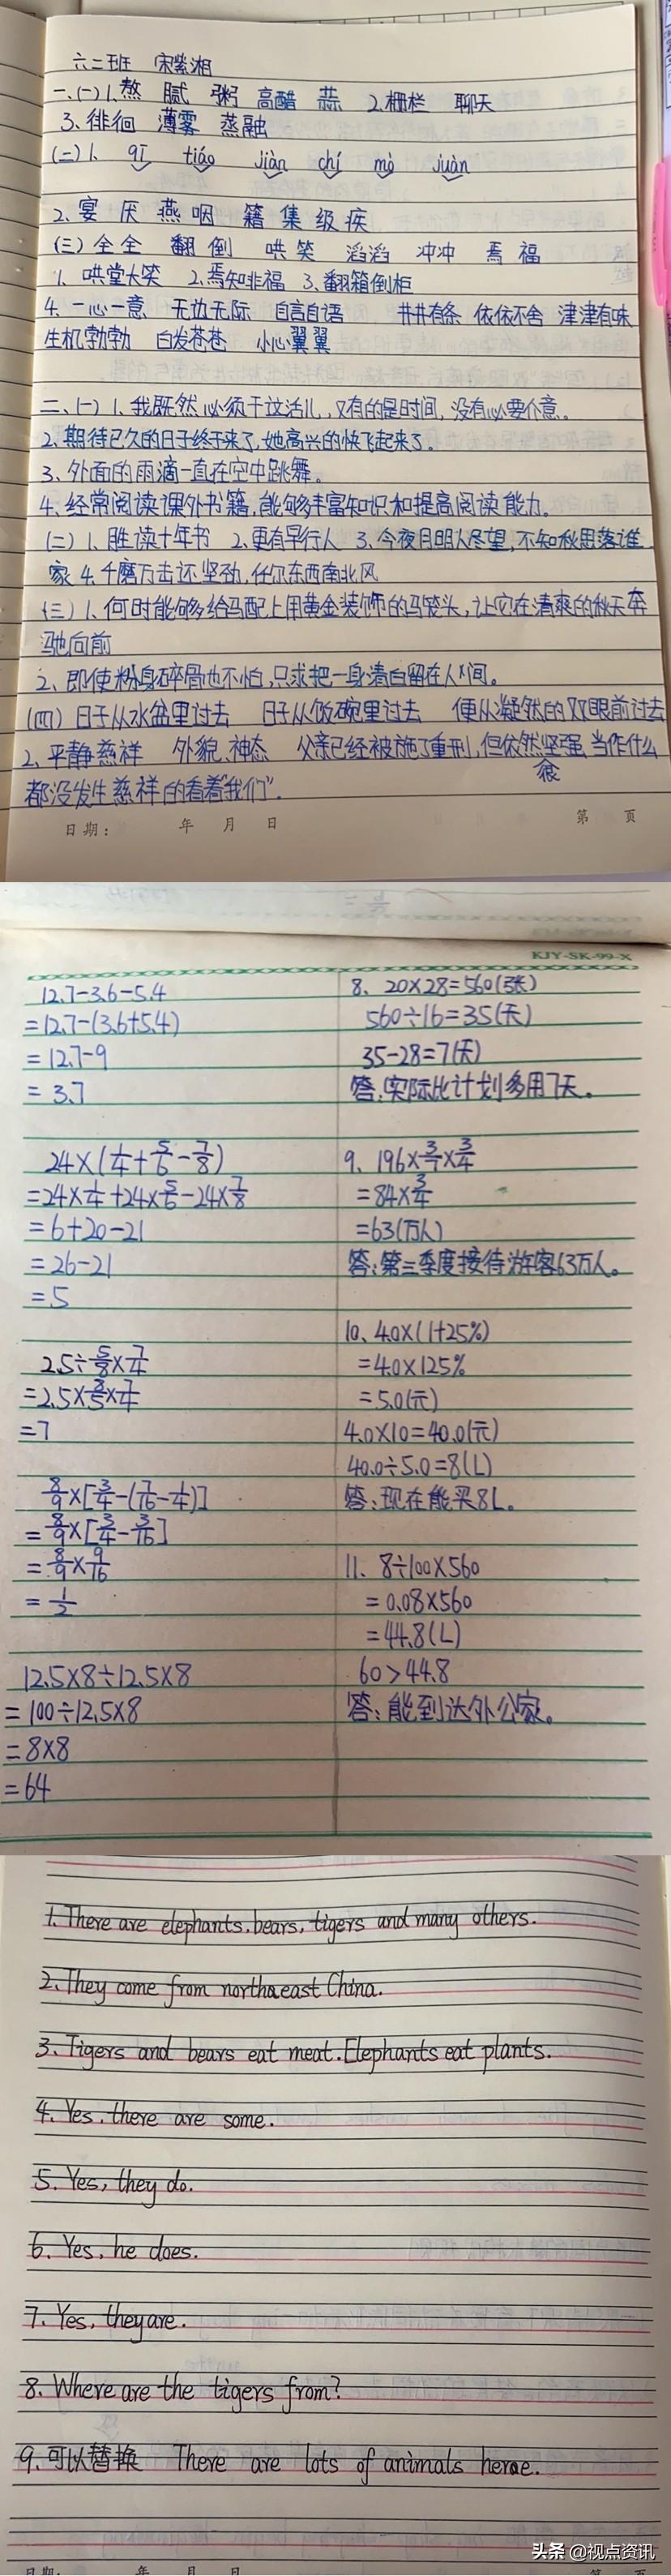 六二班 宋紫湘
一、(一)1、熬 腻 粥 高醋 蒜 2、栅栏 聊天
3、徘徊 薄雾 蒸融
(二)1、 qī tiáo jiàn chí mò juàn
2、宴 厌 燕 咽 籍 集 级 疾
(三)全全 翻 倒 哄 笑 滔滔 冲冲 焉 福
1、哄堂大笑 2、焉知非福 3、翻箱倒柜
4、一心一意 无边无际 自言自语 井井有条 依依不舍 津津有味
生机勃勃 白发苍苍 小心翼翼
二、(一)1、我既然必须干这活儿,又有的是时间,没有必要介意。
2、期待已久的日子终于来了,她高兴的快飞起来了。
3、外面的雨滴一直在空中跳舞。
4、经常阅读课外书籍,能够丰富知识和提高阅读能力。
(二)1、胜读十年书 2、更有早行人 3、今夜月明人尽望,不知秋思落谁
家 4、千磨万击还坚劲,任尔东西南北风
(三)1、何时能够给马配上用黄金装饰的马笼头,让它在清爽的秋天奔
驰向前
2、即使粉身碎骨也不怕,只求把一身清白留在人间。
(四)日子从水盆里过去 日子从饭碗里过去 便从凝然的双眼前过去
2、平静慈祥 外貌、神态 父亲已经被施了重刑,但依然坚强 当作什么
都没发生慈祥的看着"我们".
日期: 年 月 日 第 页
KJY-SK-99-X
12.7-3.6-5.4
=12.7-(3.6+5.4)
=12.7-9
=3.7
24×(1/4+5/6-7/8)
=24×1/4+24×5/6-24×7/8
=6+20-21
=26-21
=5
2.5÷5/8×7/4
=2.5×8/5×7/4
=7
8/9×[3/4-(7/16-1/4)]
=8/9×[3/4-3/16]
=8/9×9/16
=1/2
12.5×8÷12.5×8
=100÷12.5×8
=8×8
=64
8、20×28=560(张)
560÷16=35(天)
35-28=7(天)
答:实际比计划多用7天。
9、196×3/7×3/4
=84×3/4
=63(万人)
答:第三季度接待游客63万人。
10、4.0×(1+25%)
=4.0×125%
=5.0(元)
4.0×10=40.0(元)
40.0÷5.0=8(L)
答:现在能买8L。
11、8÷100×560
=0.08×560
=44.8(L)
60>44.8
答:能到达外公家。
1. There are elephants, bears, tigers and many others.
2. They come from northeast China.
3. Tigers and bears eat meat. Elephants eat plants.
4. Yes, there are some.
5. Yes, they do.
6. Yes, he does.
7. Yes, they are.
8. Where are the tigers from?
9. 可以替换 There are lots of animals here.
日期: 年 月 日 第 页
头条@视点资讯